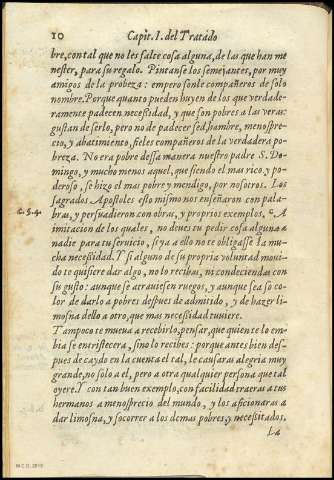 10 Capit. I. del Tratado
bre, con tal que no les falte cosa alguna, de las que han me
nester, para su regalo. Pintanse los semejantes, por muy
amigos de la probeza: empero sonle compañeros de solo
nombre. Porque quanto pueden huyen de los que verdade-
ramente padecen necessidad, y que son pobres a las veras:
gustan de serlo, pero no de padecer sed, hambre, menospre-
cio, y abatimiento, fieles compañeros de la verdadera po-
breza. No era pobre dessa manera nuestro padre S. Do-
mingo, y mucho menos aquel, que siendo el mas rico, y po-
deroso, se hizo el mas pobre y mendigo, por nosotros. Los
sagrados Apostoles esto mismo nos enseñaron con pala-
bras, y persuadieron con obras, y proprios exemplos, A
imitacion de los quales, no deues tu pedir cosa alguna a
nadie para tu seruicio, si ya a ello no te obligasse la mu-
cha necessidad. Y si alguno de su propria voluntad moui-
do te quisiere dar algo, no lo recibas, ni condeciendas con
su gusto: aunque se atrauiessen ruegos, y aunque sea so co-
lor de darlo a pobres despues de admitido, y de hazer li-
mosna dello a otro, que mas necessidad tuuiere.
Tampoco te mueua a recebirlo, pensar, que quien te lo em-
bia se entristecera, sino lo recibes: porque antes bien des-
pues de caydo en la cuenta el tal, le causaras alegria muy
grande, no solo a el, pero a otra qualquier persona que tal
oyere. Y con tan buen exemplo, con facilidad traeras a tus
hermanos a menosprecio del mundo, y los aficionaras a
dar limosna, y socorrer a los demas pobres, y necessitados.
La